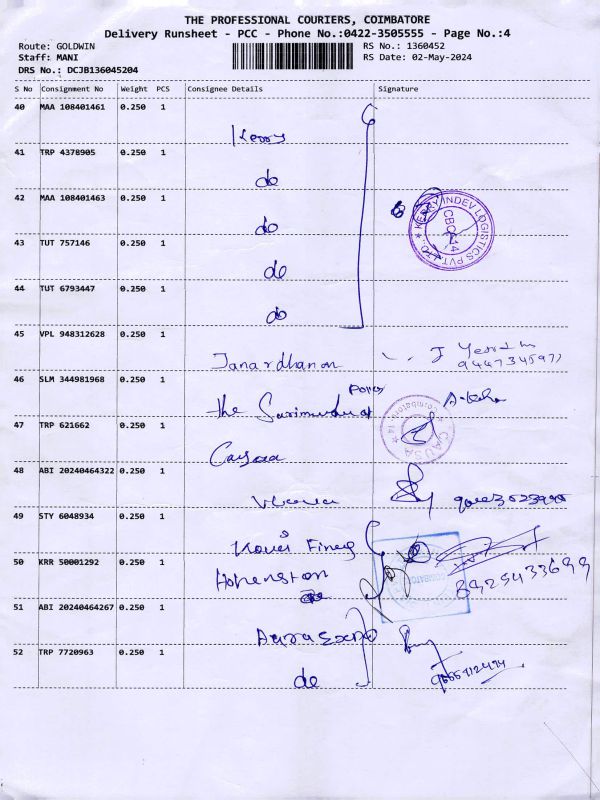 THE PROFESSIONAL COURIERS, COIMBATORE
Delivery Runsheet - PCC - Phone No.:0422-3505555 - Page No.:4
Route: GOLDWIN RS No.: 1360452
Staff: MANI RS Date: 02-May-2024
DRS No.: DCJB136045204
S No Consignment No Weight PCS Consignee Details Signature
40 MAA 108401461 0.250 1
Kerry
41 TRP 4378905 0.250 1
do
42 MAA 108401463 0.250 1
do
KERRY INDEV LOGISTICS PVT.
43 TUT 757146 0.250 1
do
44 TUT 6793447 0.250 1
do
45 VPL 948312628 0.250 1
Janardhanan
46 SLM 344981968 0.250 1
the
47 TRP 621662 0.250 1
CAUSA
Coimbatore - 14
48 ABI 20240464322 0.250 1
49 STY 6048934 0.250 1
50 KRR 50001292 0.250 1
8925433699
51 ABI 20240464267 0.250 1
52 TRP 7720963 0.250 1
do